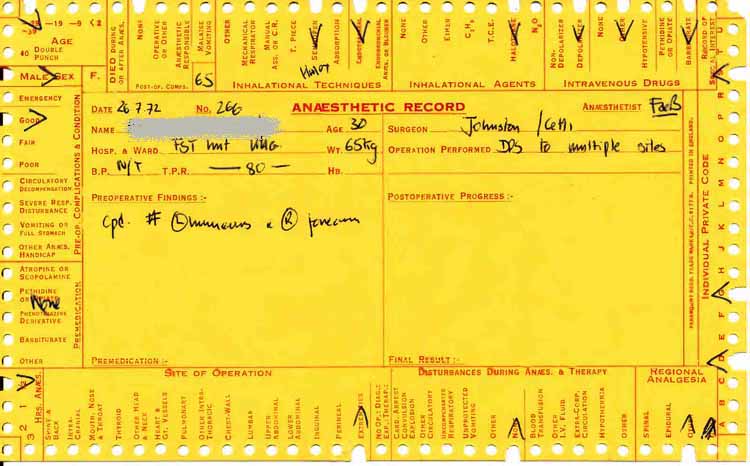 -39 -19 -9 <2
AGE
40 DOUBLE PUNCH
MALE SEX F.
DIED DURING OR AFTER ANÆS.
NONE
OPERATIVE OR OTHER
ANÆSTHETIC RESPONSIBLE
MALAISE VOMITING
OTHER
MECHANICAL RESPIRATOR
MANUAL ASS. OR C.R.
T. PIECE
ABSORPTION
ENDOBRONCHIAL
NONE
OTHER
ETHER
C₃H₆
T.C.E.
N₂O
NON-DEPOLARIZER
DEPOLARIZER
NONE
OTHER
HYPOTENSIVE
PETHIDINE OR OPIATE
BARBITURATE
RECORD OF SPECIAL INTEREST
POST-OP. COMPS. 65
INHALATIONAL TECHNIQUES
INHALATIONAL AGENTS
INTRAVENOUS DRUGS
DATE 26.7.72 NO. 266 ANÆSTHETIC RECORD ANÆSTHETIST
NAME AGE 30 SURGEON Johnston
HOSP. & WARD FST WT. 65kg OPERATION PERFORMED DPS to multiple sites
B.P. N/T T.P.R. — 80 — HB.
PREOPERATIVE FINDINGS :- POSTOPERATIVE PROGRESS :-
cpd. # (L) humerus & (R) forearm
PREMEDICATION :- FINAL RESULT :-
PRE-OP. COMPLICATIONS & CONDITION
EMERGENCY
GOOD
FAIR
POOR
CIRCULATORY DECOMPENSATION
SEVERE RESP. DISTURBANCE
VOMITING OR FULL STOMACH
OTHER ANÆS. HANDICAP
PREMEDICATION
ATROPINE OR SCOPOLAMINE
PETHIDINE OR
None
PHENOTHIAZINE DERIVATIVE
BARBITURATE
OTHER
PRINTED IN ENGLAND.
INDIVIDUAL PRIVATE CODE
A B C D E F G H J K L M N O P R S T U
SITE OF OPERATION
DISTURBANCES DURING ANÆS. & THERAPY
REGIONAL ANALGESIA
3 2 1 HRS. ANÆS.
SPINE & BACK
INTRA-CRANIAL
MOUTH, NOSE & THROAT
THYROID
OTHER HEAD & NECK
HEART & GT. VESSELS
PULMONARY
OTHER INTRA-THORACIC
CHEST-WALL
LUMBAR
UPPER ABDOMINAL
LOWER ABDOMINAL
INGUINAL
PERINEAL
EXTREMITIES
NO OP.: DIAG.: EXP.: THERAP.:
CARD. ARREST CONVULSION EXPLOSION
OTHER CIRCULATORY
UNCOMPENSATED RESPIRATORY
UNPROTECTED VOMITING
OTHER
NONE
BLOOD TRANSFUSION
OTHER I.V. FLUID
EXTRA-CORP. CIRCULATION
HYPOTHERMIA
OTHER
SPINAL
EPIDURAL